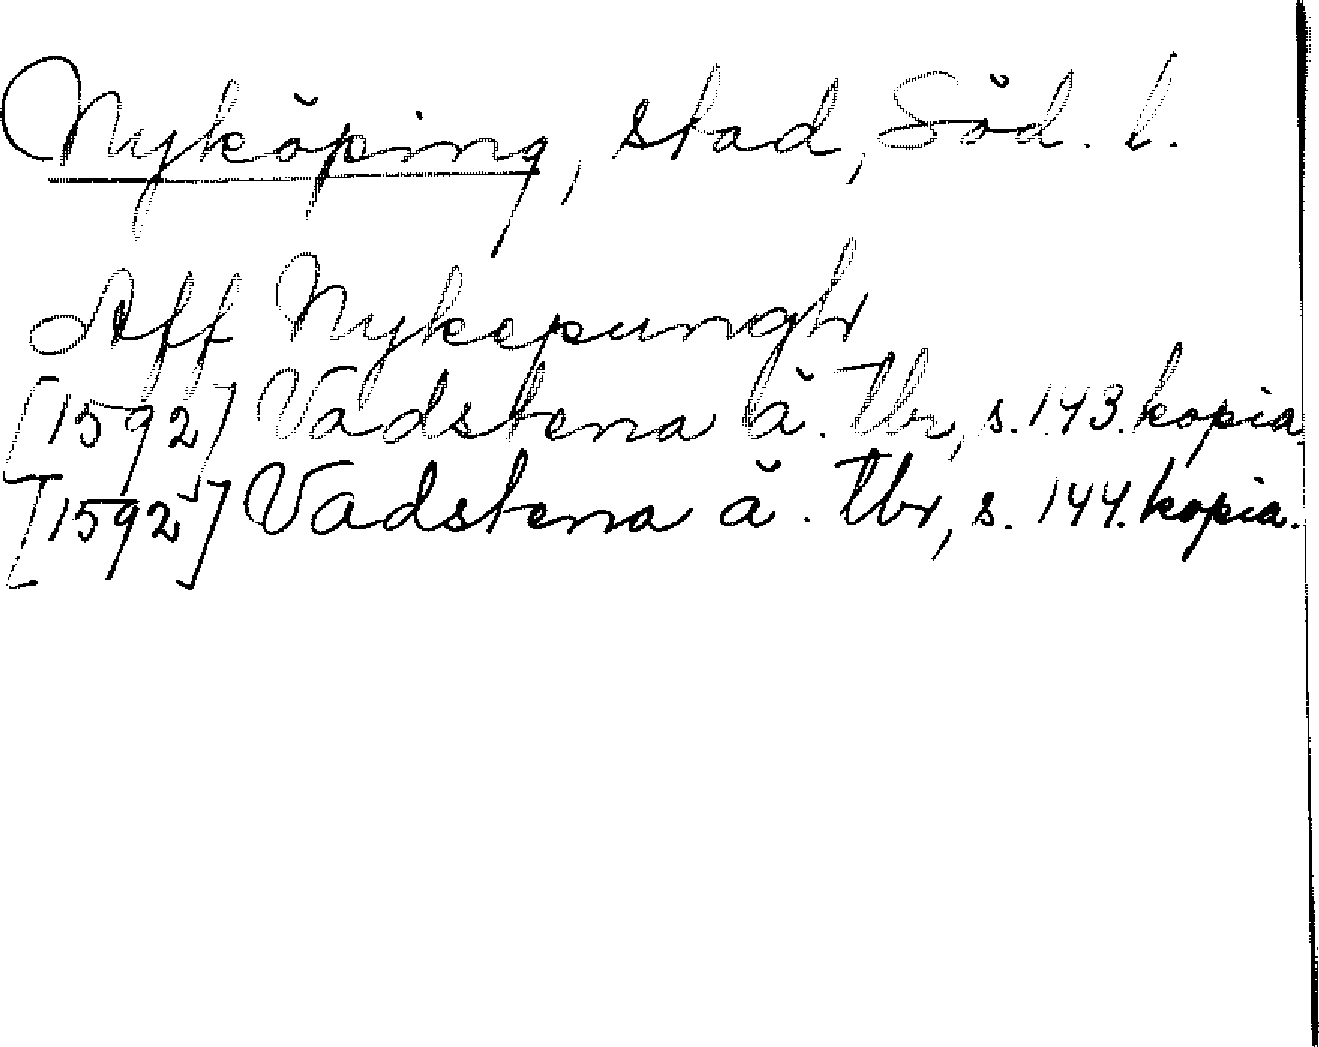 Nyköping, stad, Söd. l.
Aff Nykepungh
[1592] Vadstena ä. Tbr, s. 143. kopia.
[1592] Vadstena ä. Tbr, s. 144. kopia.